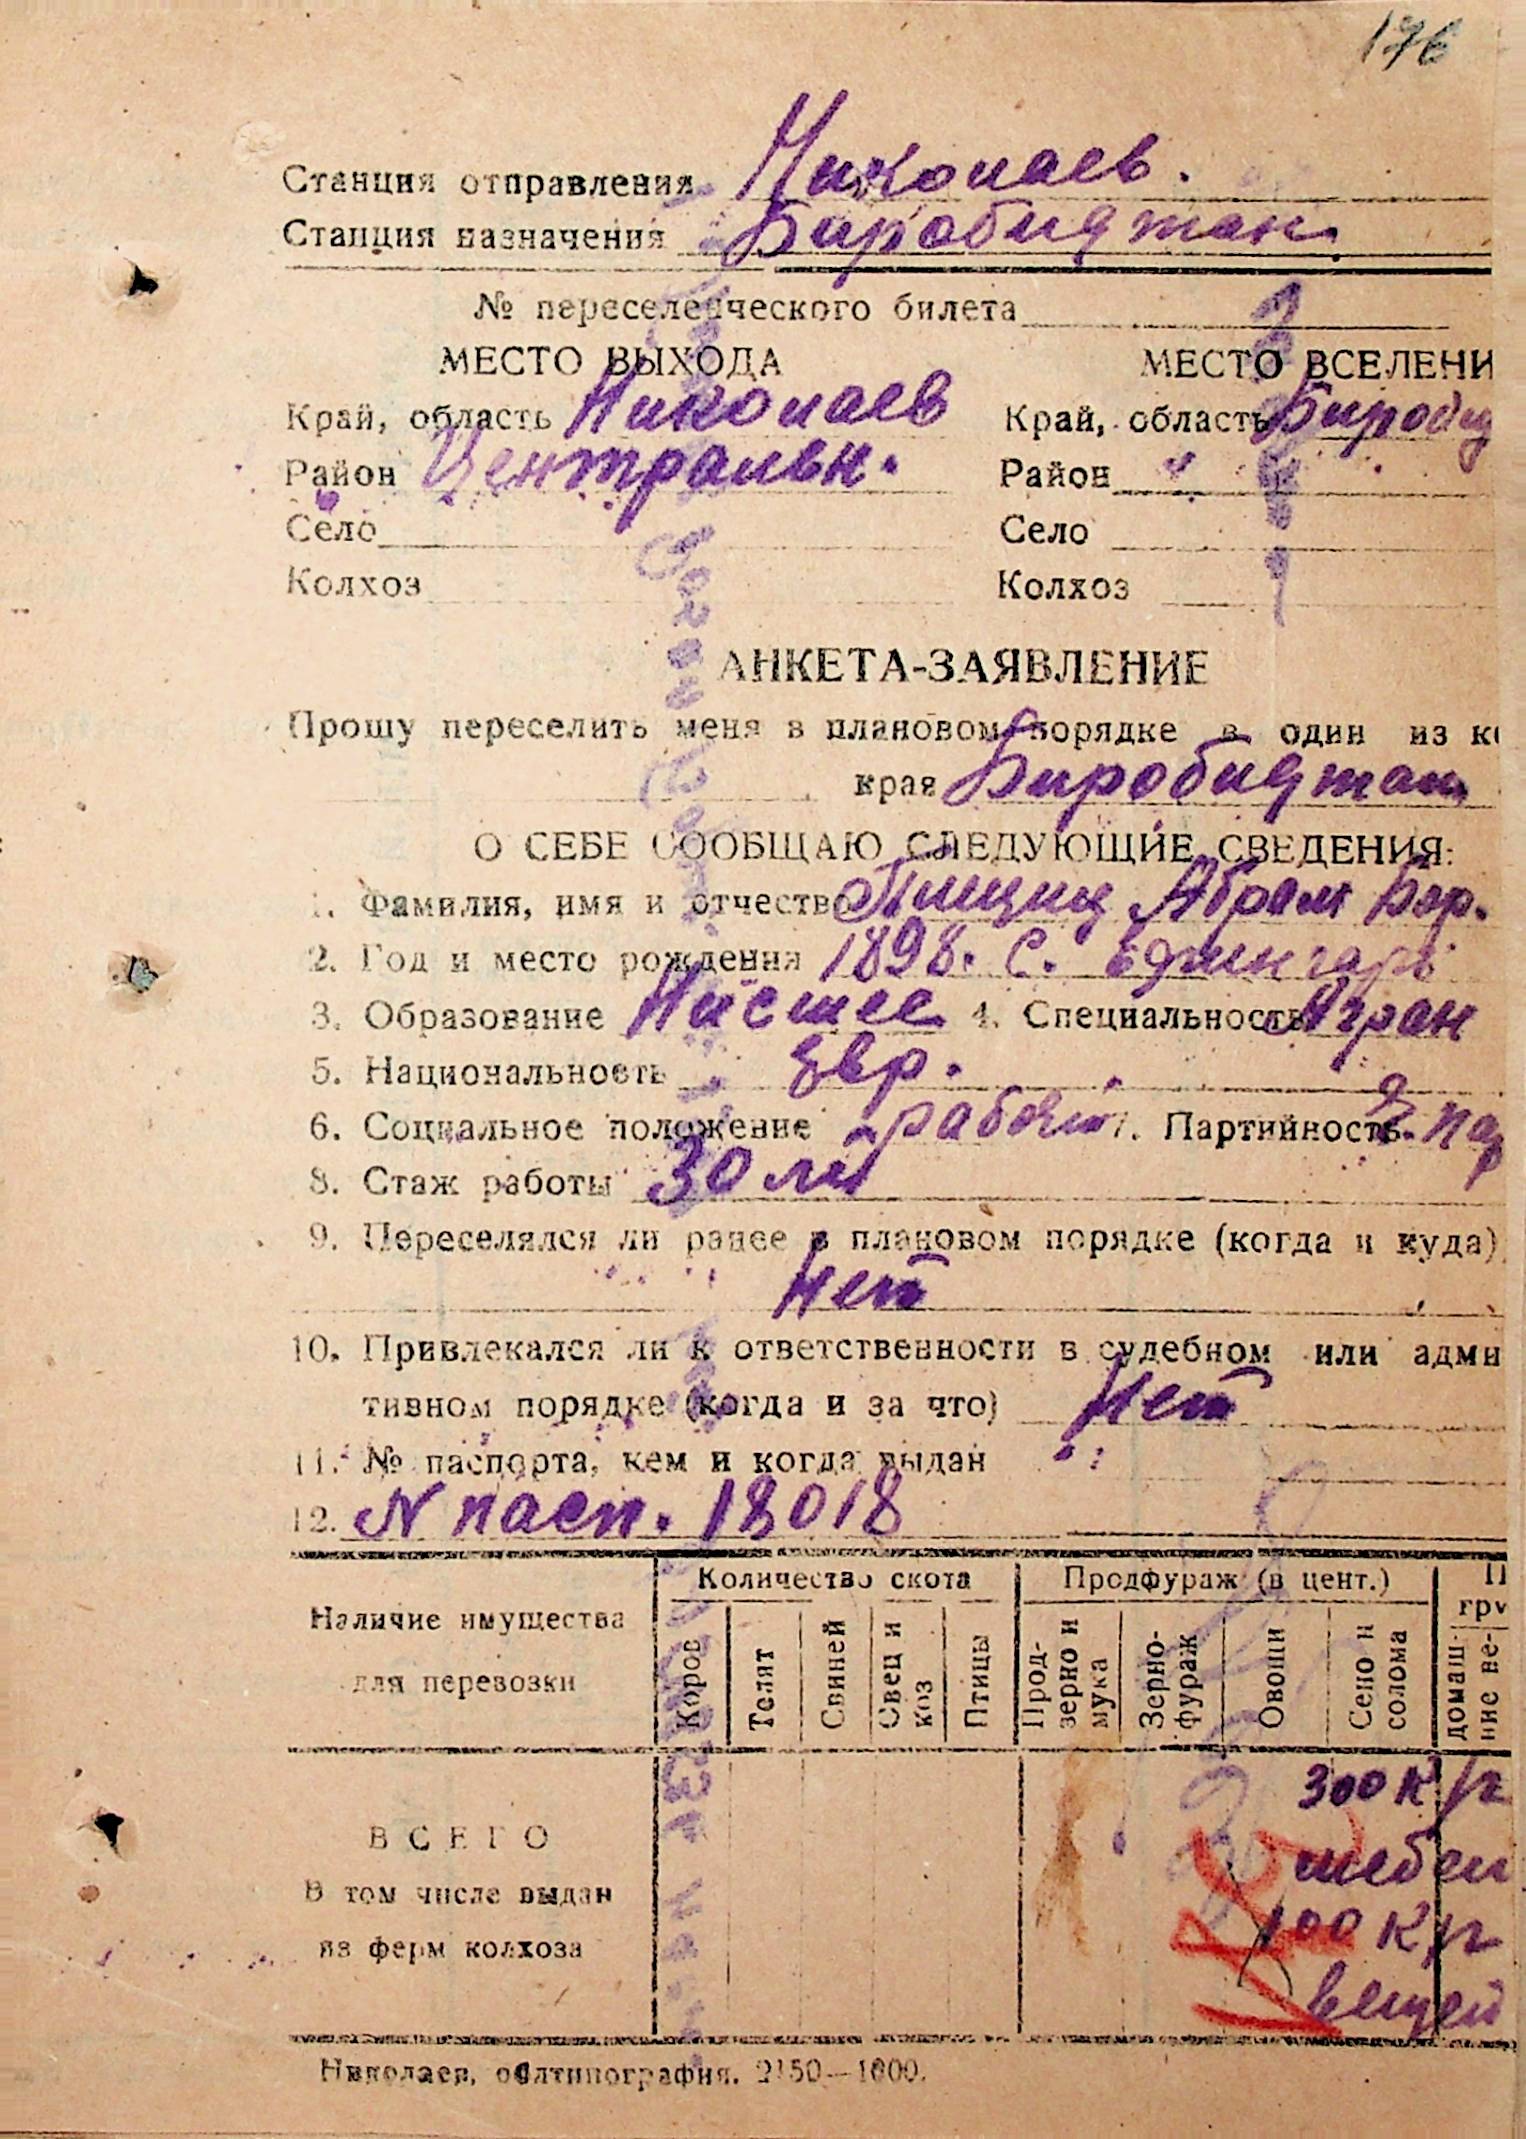 176
Станция отправления Николаев.
Станция назначения Биробиджан.
№ переселенческого билета
МЕСТО ВЫХОДА МЕСТО ВСЕЛЕНИ
Край, область Николаев Край, область Биробид
Район Центральн. Район "
Село Село
Колхоз Колхоз
АНКЕТА-ЗАЯВЛЕНИЕ
Прошу переселить меня в плановом порядке в один из к
края Биробиджан
О СЕБЕ СООБЩАЮ СЛЕДУЮЩИЕ СВЕДЕНИЯ:
1. Фамилия, имя и отчество Абрам Бор.
2. Год и место рождения 1898. С.
3. Образование Нисшее 4. Специальность
5. Национальность Евр.
6. Социальное положение рабоч 7. Партийность пар
8. Стаж работы 30 лет
9. Переселялся ли ранее в плановом порядке (когда и куда)
Нет
10. Привлекался ли к ответственности в судебном или адми
тивном порядке (когда и за что) Нет
11. № паспорта, кем и когда выдан
12. N пасп. 18018
Наличие имущества для перевозки
Количество скота Продфураж (в цент.) П
гру
Коров Телят Свиней Свец и коз Птицы Прод-зерно и мука Зерно-фураж Овощи Сено и солома домаш-ние ве-
ВСЕГО 300 к/г
мебел
В том числе выдан 100 к/г
из ферм колхоза вещей
Николаев, облтипография. 2150—1000.